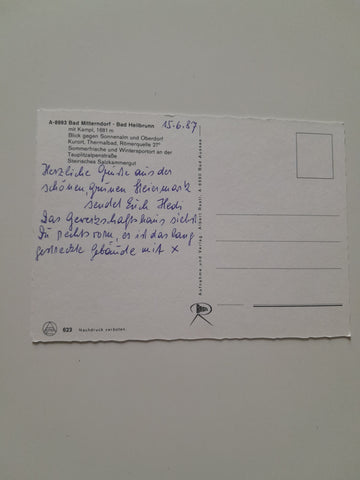 A-8983 Bad Mitterndorf - Bad Heilbrunn
mit Kampl, 1681 m
Blick gegen Sonnenalm und Oberdorf
Kurort, Thermalbad, Römerquelle 27°
Sommerfrische und Wintersportort an der
Tauplitzalpenstraße
Steirisches Salzkammergut
15.6.87
Herzliche Grüße aus der
schönen, grünen Steiermark
sendet Euch Hedi
Das Gewerkschaftshaus siehst
Du rechts vorn, es ist das lang
gestreckte Gebäude mit x
Aufnahme und Verlag: Albert Rastl, A-8990 Bad Aussee
R
623 Nachdruck verboten.